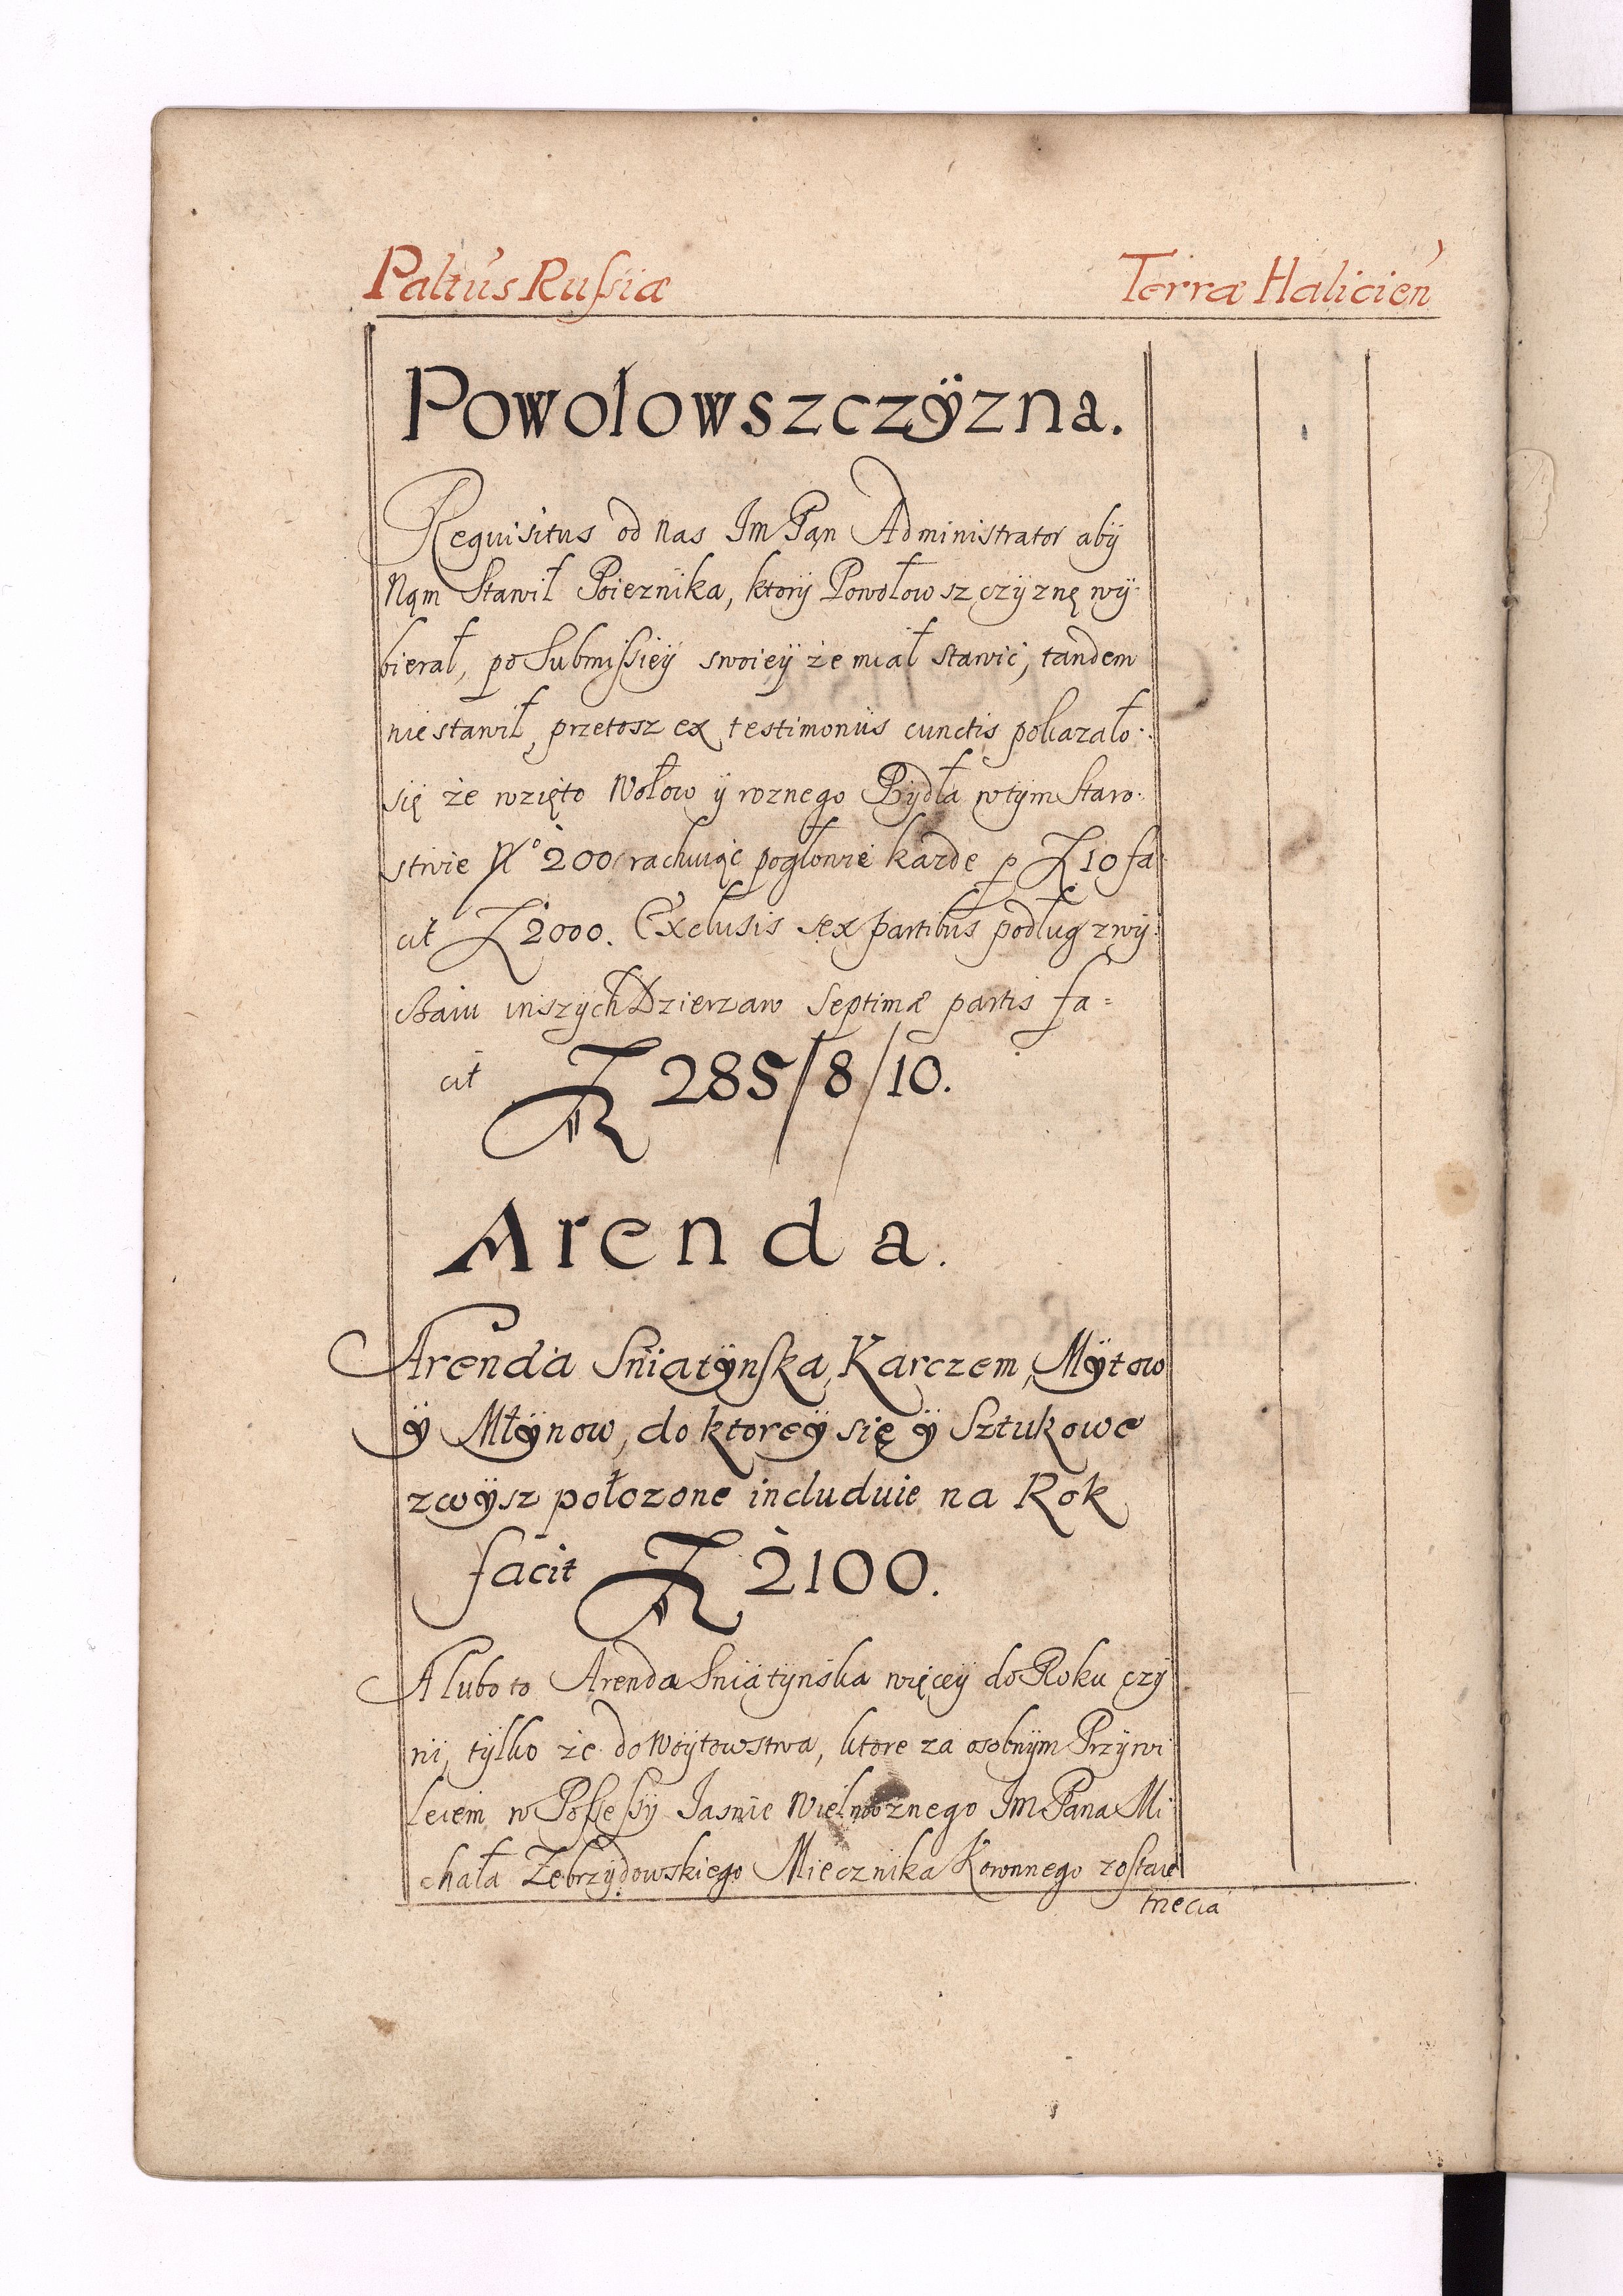 Paltus Russiæ Terræ Halicien
Powolowszczÿzna.
Requisitus od nas Im Pan Administrator abÿ
Nąm Stawił Poieznika, ktorÿ Powołowszczÿznę wÿ
bierał, po Submissieÿ swoieÿ że miał stawic, tandem
nie stawił, przetosz ex testimoniis cunctis pokazało
się że wzięto Wołow ÿ roznego Bÿdła wtÿm Staro
stwie No 200 rachuiąc pogłowie kazde p Zł 10 fa
cit Zł 2000. Exclusis sex partibus podług zwÿ
czaiu inszÿch Dzierzaw Septimæ partis fa=
cit Zł 285/8/10.
Arenda.
Arenda Sniatÿnska, Karczem, Mÿtow
ÿ Młÿnow, do ktoreÿ się ÿ Sztukowe
zwÿsz połozone includuie na Rok
facit Zł 2100.
A lubo to Arenda Sniatÿnska więceÿ do Roku czÿ
ni, tÿlko że do Woÿtowstwa, ktore za osobnÿm Przÿwi
leiem w Possessÿ Iasnie Wielmoznego Im Pana Mi
chała Zebrzÿdowskiego Miecznika Koronnego zostaie
trzecia